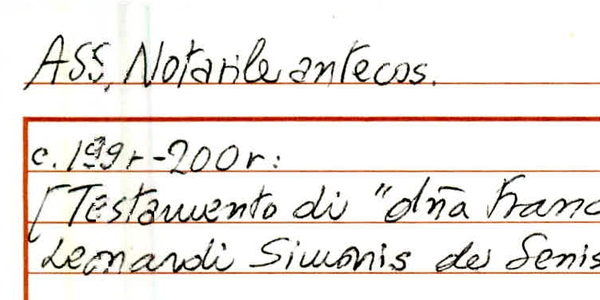 ASS, Notarile antecos.
c. 199r-200r:
[Testamento di "dña Franc
Leonardi Simonis de Senis